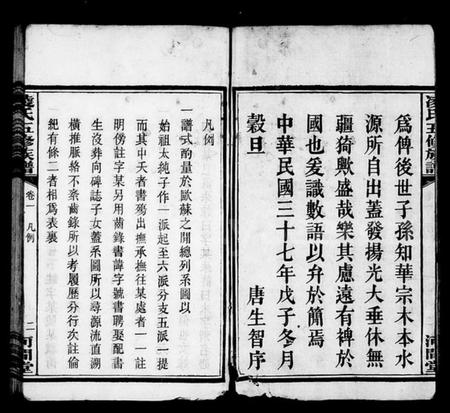 為俾後世子孫知華宗木本水
源所自出蓋發揚光大垂休無
疆猗歟盛哉樂其慮遠有裨於
國也爰識數語以弁於簡焉
中華民國三十七年戊子冬月
唐生智序
穀旦
凡例
一譜式酌量於歐蘇之間總列系圖以
始祖太純子作一派起至六派分支五派一提
而其中夭者書殤出撫承撫往某處者一一註
明傍註字某另用齒錄書諱字號書聘娶配書
生沒葬向碑誌子女蓋系圖所以尋源流直溯
橫推脈絡不紊齒錄所以考履歷分行次註倫
紀有條二者相為表裏
氏五修族譜
卷一
凡例
二
河間堂